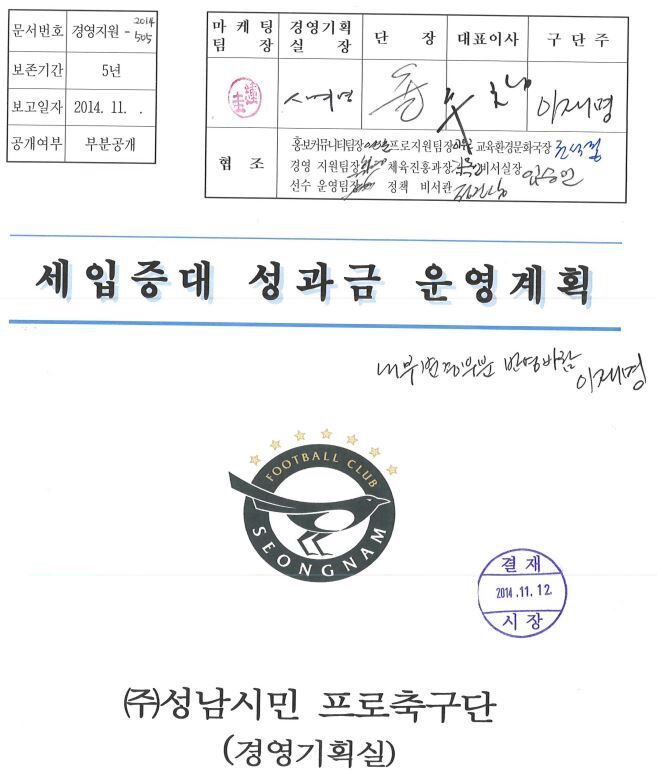 문서번호 경영지원 - 2014 505
보존기간 5년
보고일자 2014. 11. .
공개여부 부분공개
마케팅팀장 경영기획실장 단장 대표이사 구단주
이재명
협조
홍보커뮤니티팀장 프로지원팀장 교육환경문화국장
경영 지원팀장 체육진흥과장 비서실장
선수 운영팀장 정책 비서관
세입증대 성과금 운영계획
내부 반영바람
이재명
FOOTBALL CLUB
SEONGNAM
결재
2014.11.12
시장
㈜성남시민 프로축구단
(경영기획실)